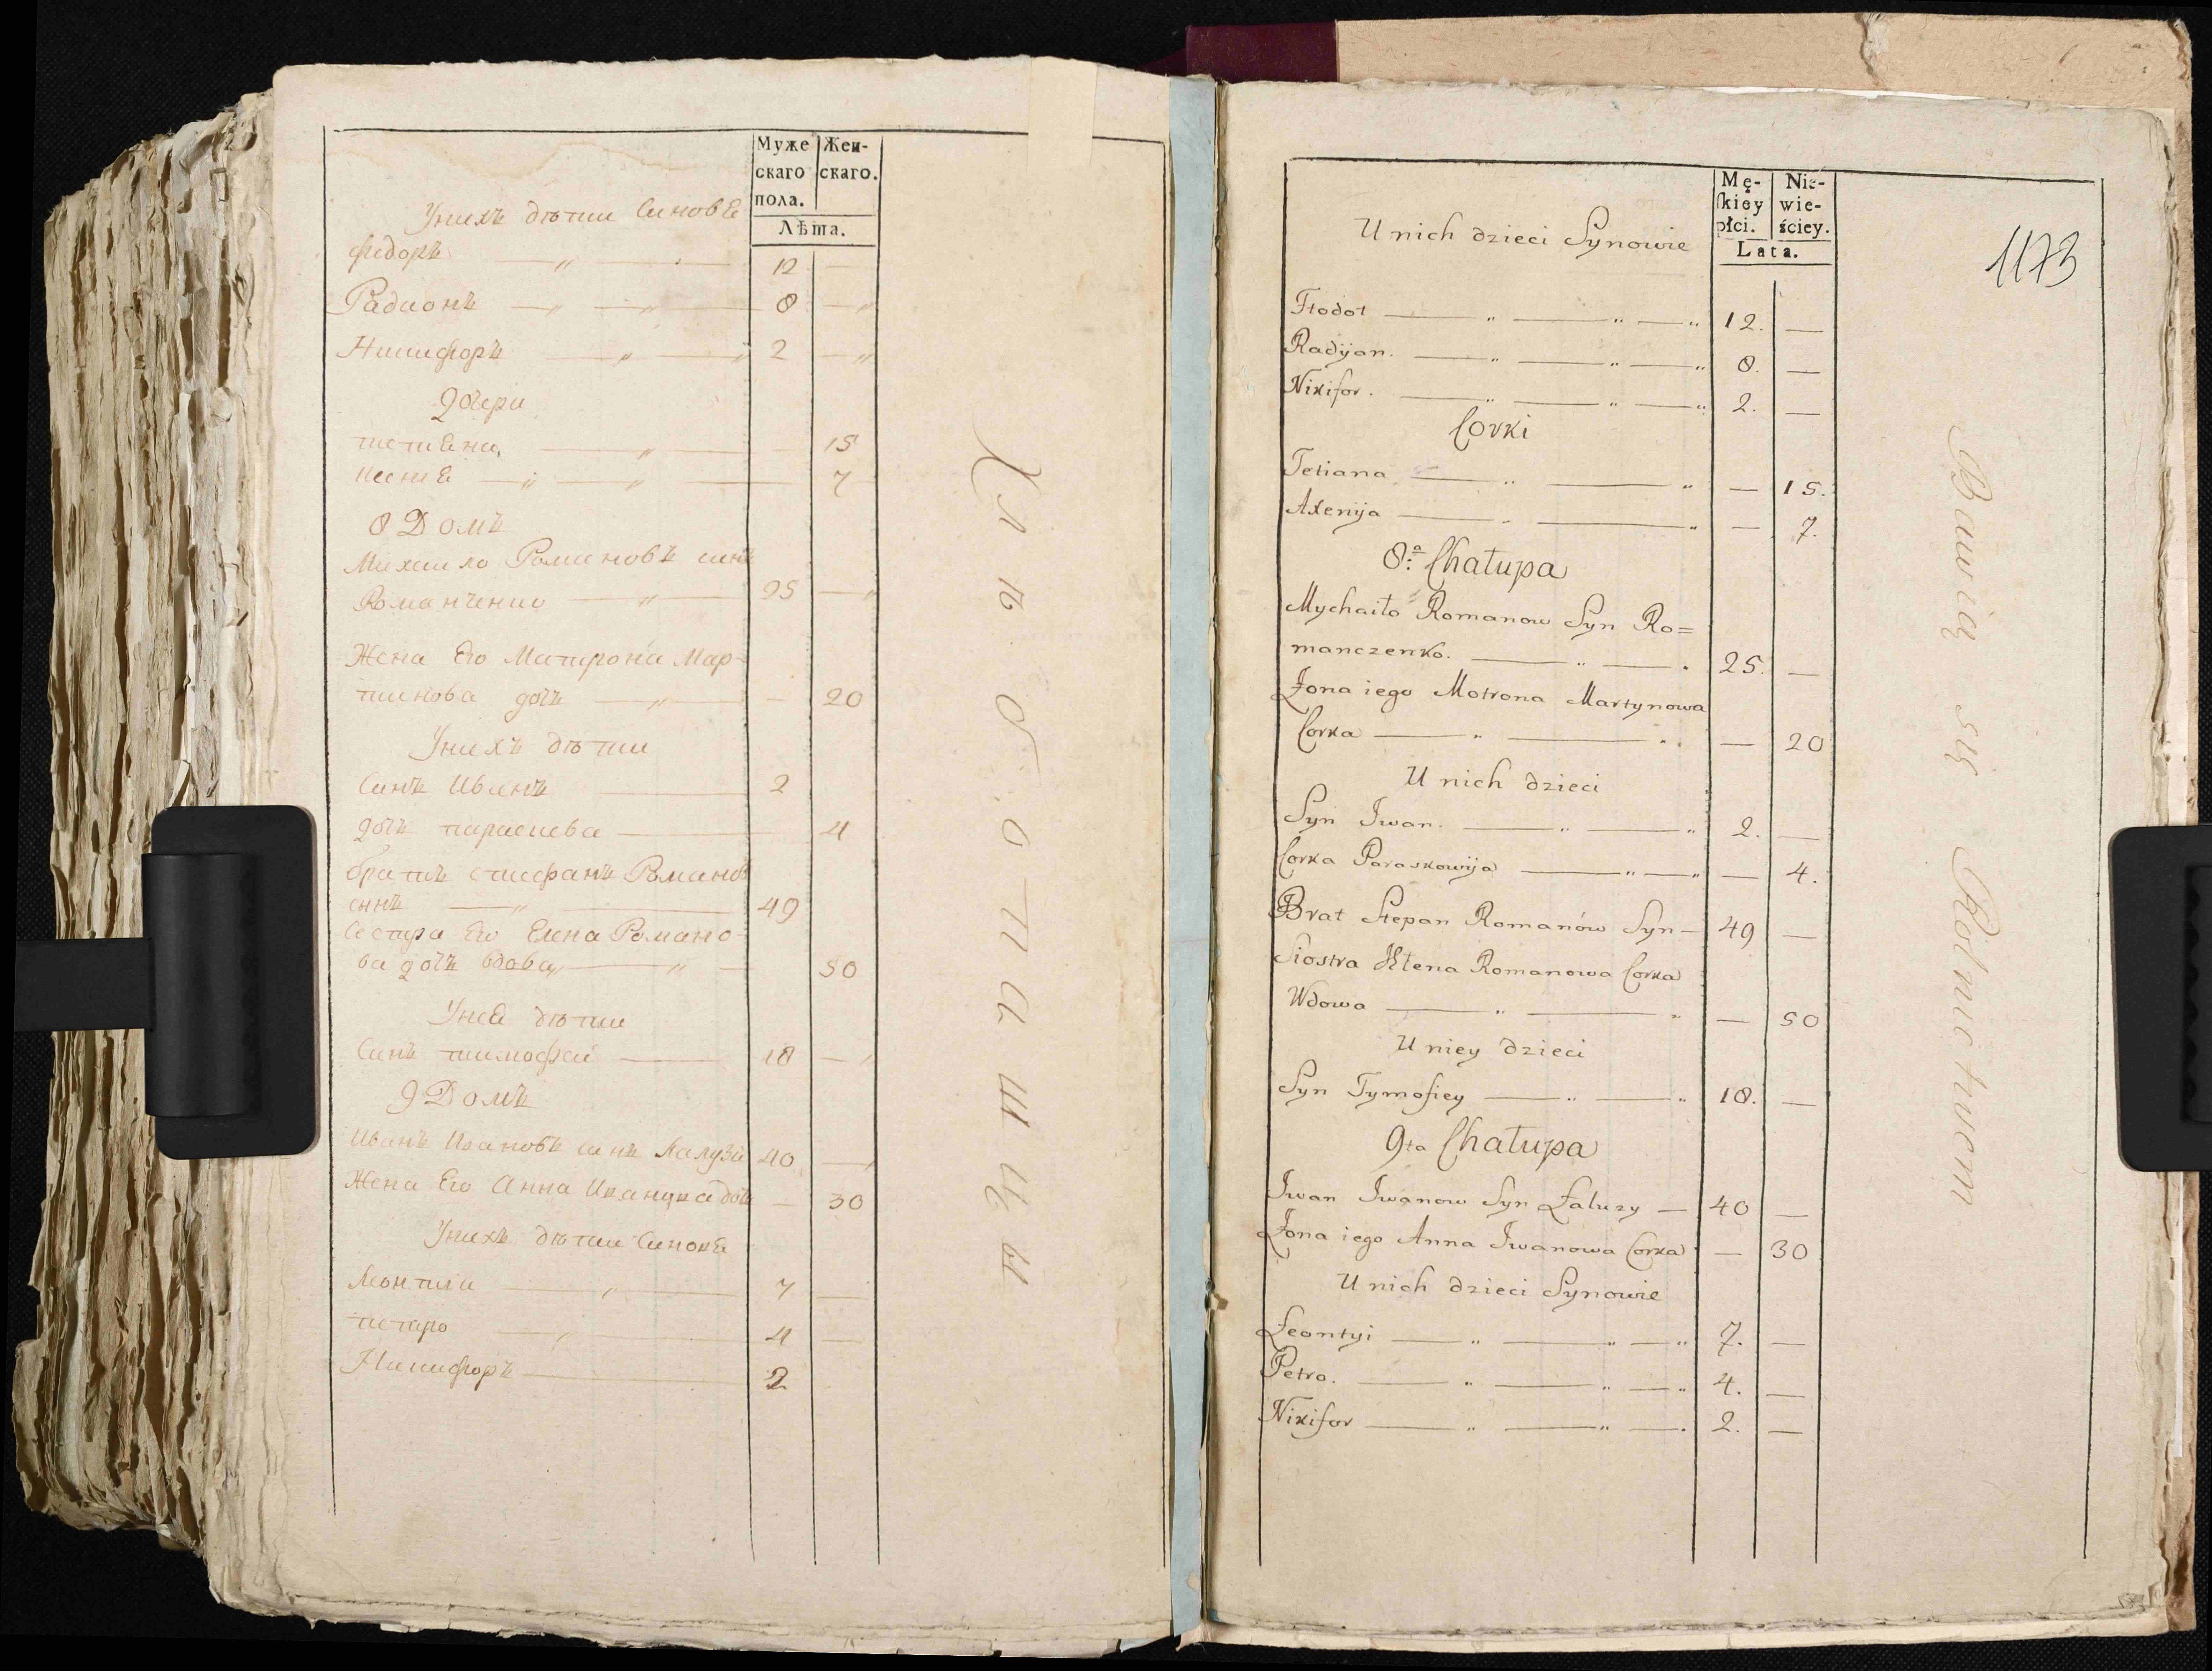 Муже
скаго
пола.
Жен-
скаго.
Лѣта.
Унихъ дѣти Синовѣ
Федоръ 12
Радионъ 8
Никифоръ 2
Дочери
татіяна 15
ксенѣ 7
8 Домъ
Михаило Романовъ синъ
Романченко 25
Жена Его Матрона Мар-
тинова дочъ 20
Унихъ дѣти
Синъ Иванъ 2
дочъ параскева 4
братъ стефанъ Романов
сннъ 49
Сестра Его Елена Романо-
ва дочъ вдова 50
Унеѣ дѣти
Синъ тимофей 18
9 Домъ
Иванъ Ивановъ синъ Лалузи 40
Жена Его Анна Иванова дочъ 30
Унихъ дѣти Синовѣ
Леонтии 7
петро 4
Никифоръ 2
Хлѣбопашцы
Mę-
skiey
płci.
Nie-
wie-
ściey.
Lata.
1173
U nich dzieci Synowie
Fłodot 12.
Radyjon. 8.
Nikifor. 2.
Corki
Tetiana 15.
Axenija 7.
8a Chałupa
Mychaiło Romanow Syn Ro=
manczenko. 25.
Żona iego Motrona Martynowa
Corka 20
U nich dzieci
Syn Iwan. 2.
Corka Paraskowija 4.
Brat Stepan Romanów Syn 49
Siostra Hłena Romanowa Corka
Wdowa 50
U niey dzieci
Syn Tymofiey 18.
9ta Chałupa
Iwan Iwanow Syn Łaluzy 40
Żona iego Anna Iwanowa Corka 30
U nich dzieci Synowie
Leontyi 7.
Petro. 4.
Nikifor 2.
Bawią się Rolnictwem